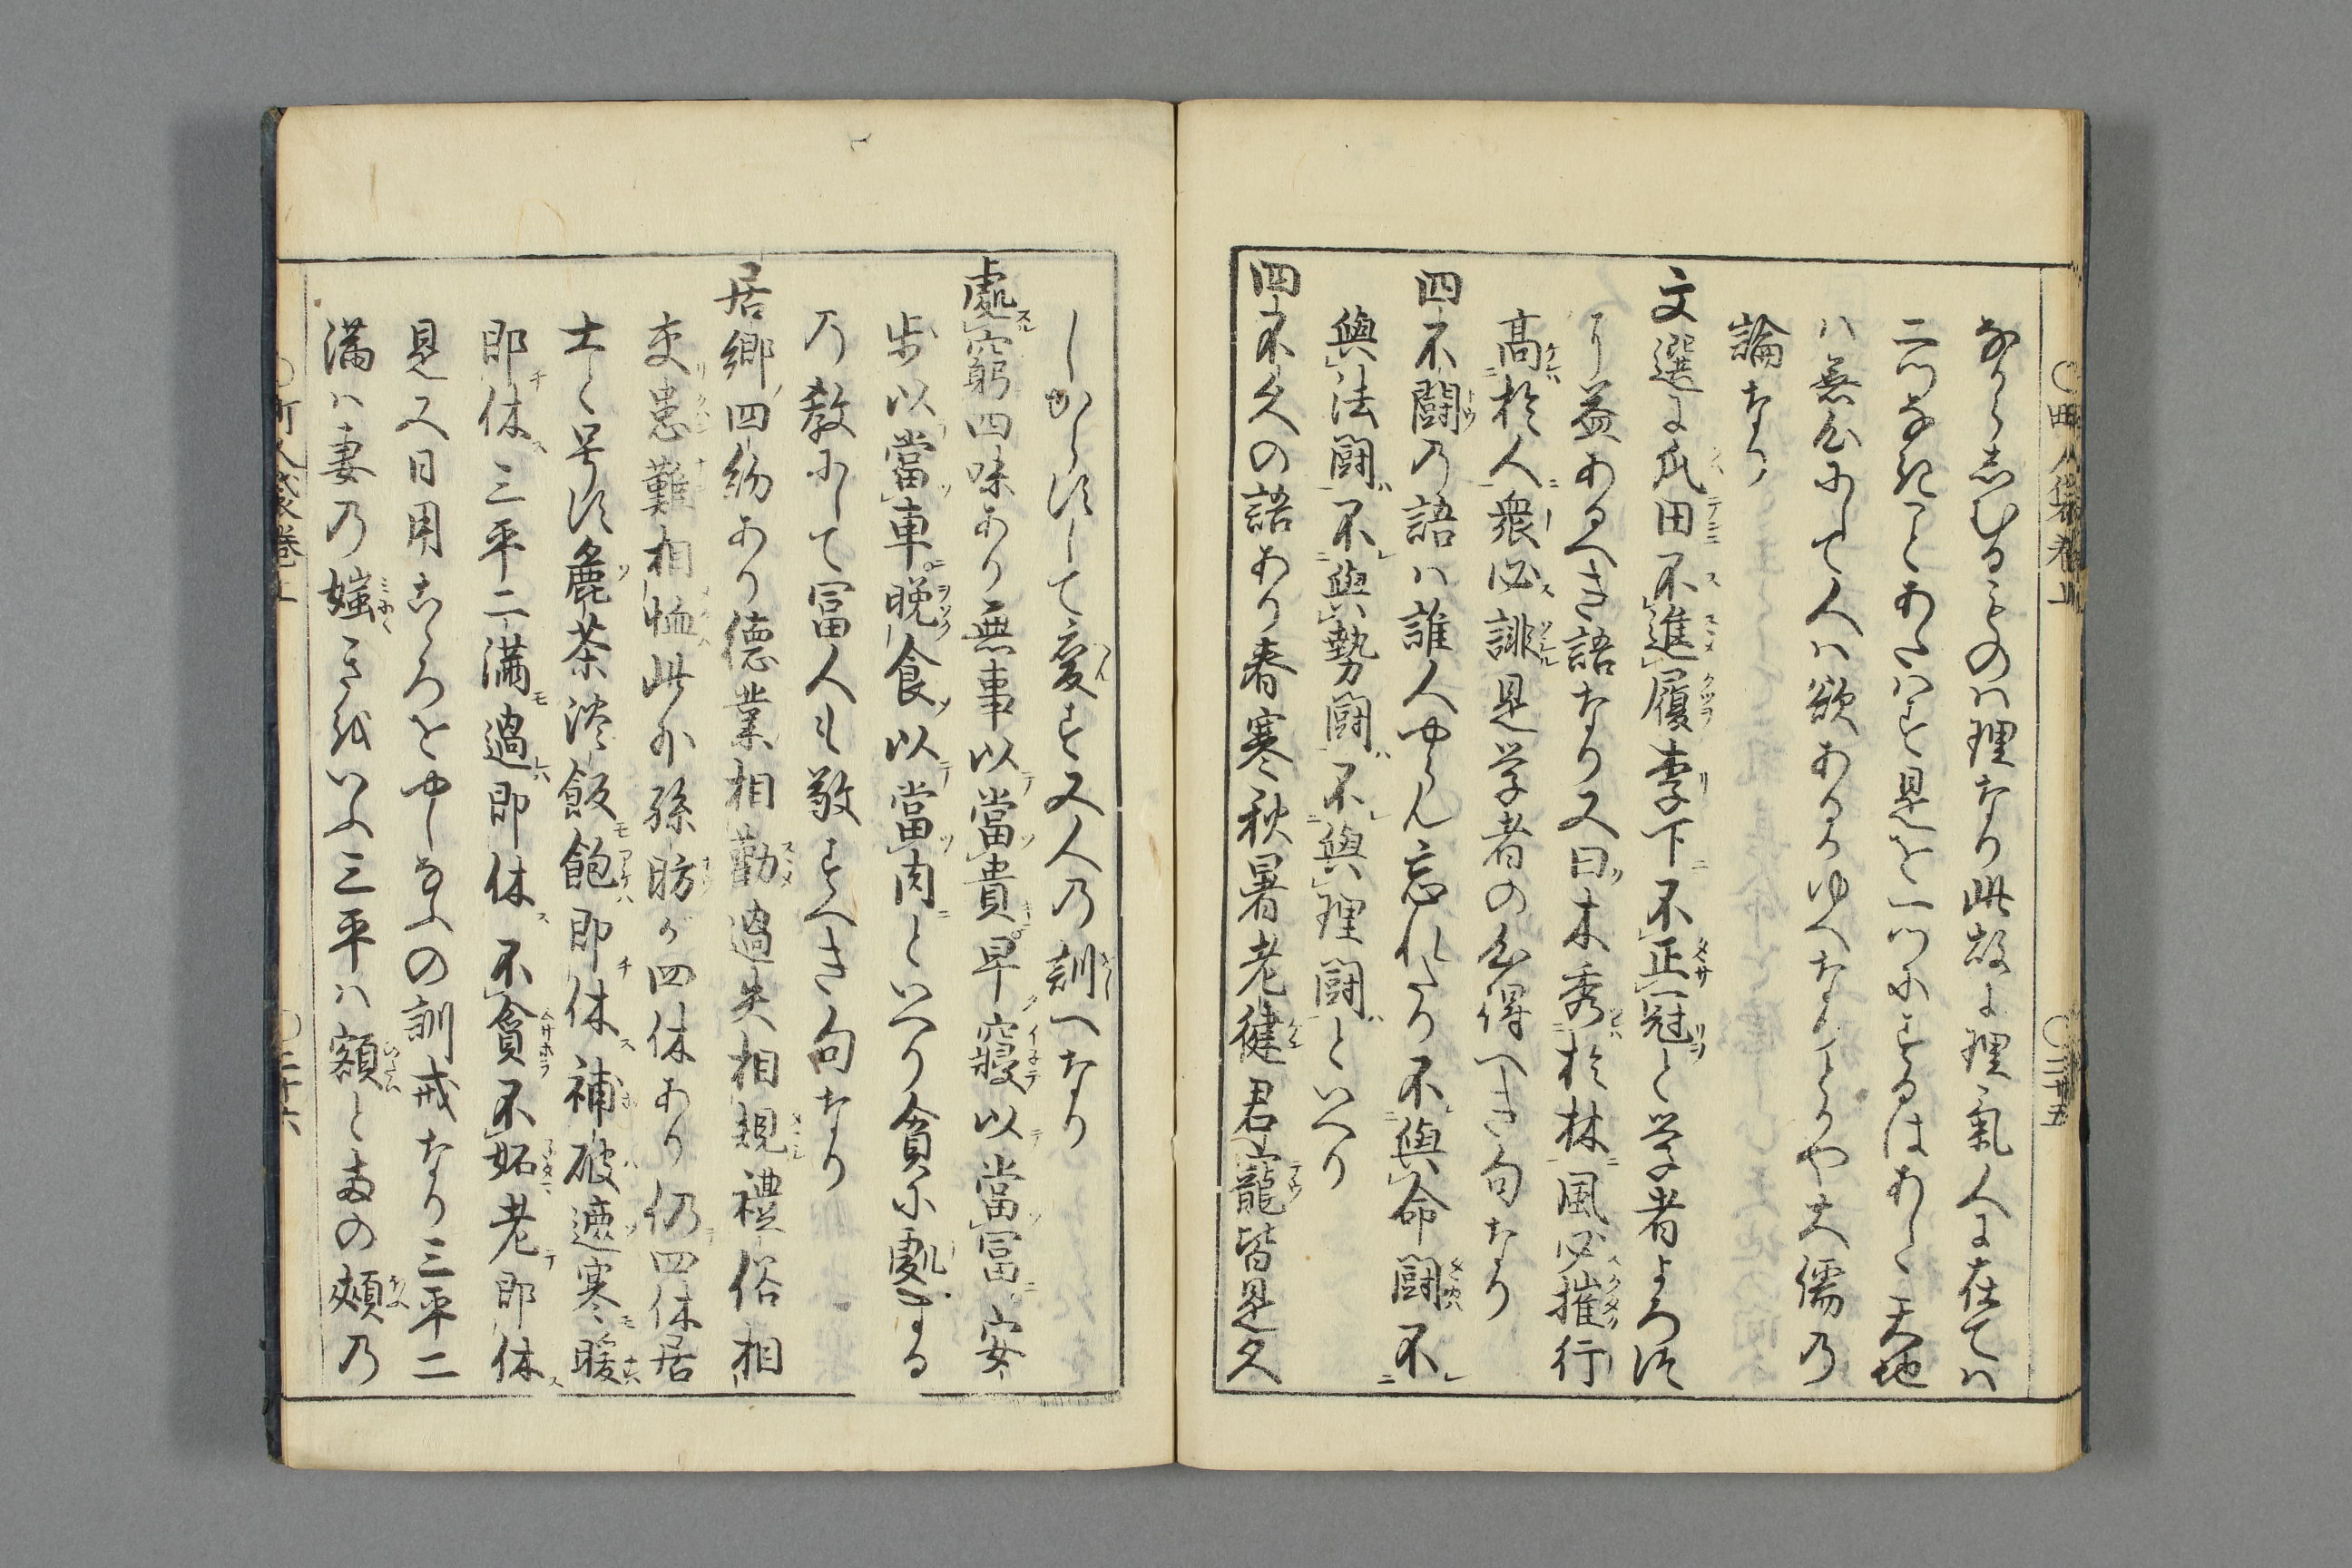 ならしむるものハ理なり此故に理氣人に在てハ
二つなきことあたハず是を一つにするはあし天地
ハ無心にして人ハ欲あるゆへなりとかや大儒乃
論なり
文選に瓜田不進履李下不正冠と学者よろつ
に益あるへき語なり又曰木秀於林風必摧行
高於人衆必誹是学者の心得へき句なり
四不闘乃語ハ誰人やらん忘れたり不與命闘不
與法闘不與勢闘不與理闘といへり
四不久の語あり春寒秋暑老健君寵皆是久
しからずして変ず又人乃訓へなり
處窮四味あり無事以當貴早寝以當冨安
歩以當車晩食以當肉といへり貧に處する
乃教にして冨人も敬すへき句なり
居郷四約あり德業相勧過失相規禮俗相
交患難相恤此外孫昉が四休あり仍四休居
士と号す麁茶淡飯飽即休補破遮寒暖
即休三平二満過即休不貪不妬老即休
見又日用こゝろをやしなふの訓戒なり三平二
満ハ妻乃媸きをいふ三平ハ額と鼻の頬乃
町人袋巻上
二十五
町人袋巻上
二十六